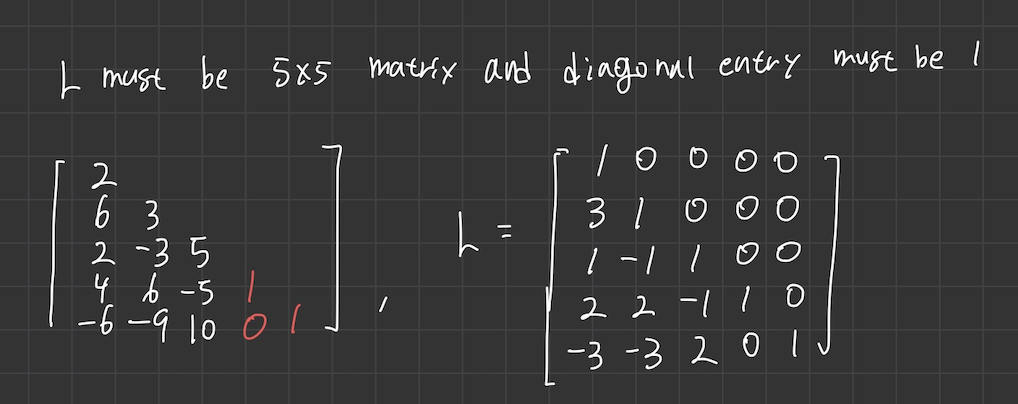 L must be 5×5 matrix and diagonal entry must be 1
2
6 3
2 -3 5
4 6 -5 1
-6 -9 10 0 1
, L =
1 0 0 0 0
3 1 0 0 0
1 -1 1 0 0
2 2 -1 1 0
-3 -3 2 0 1